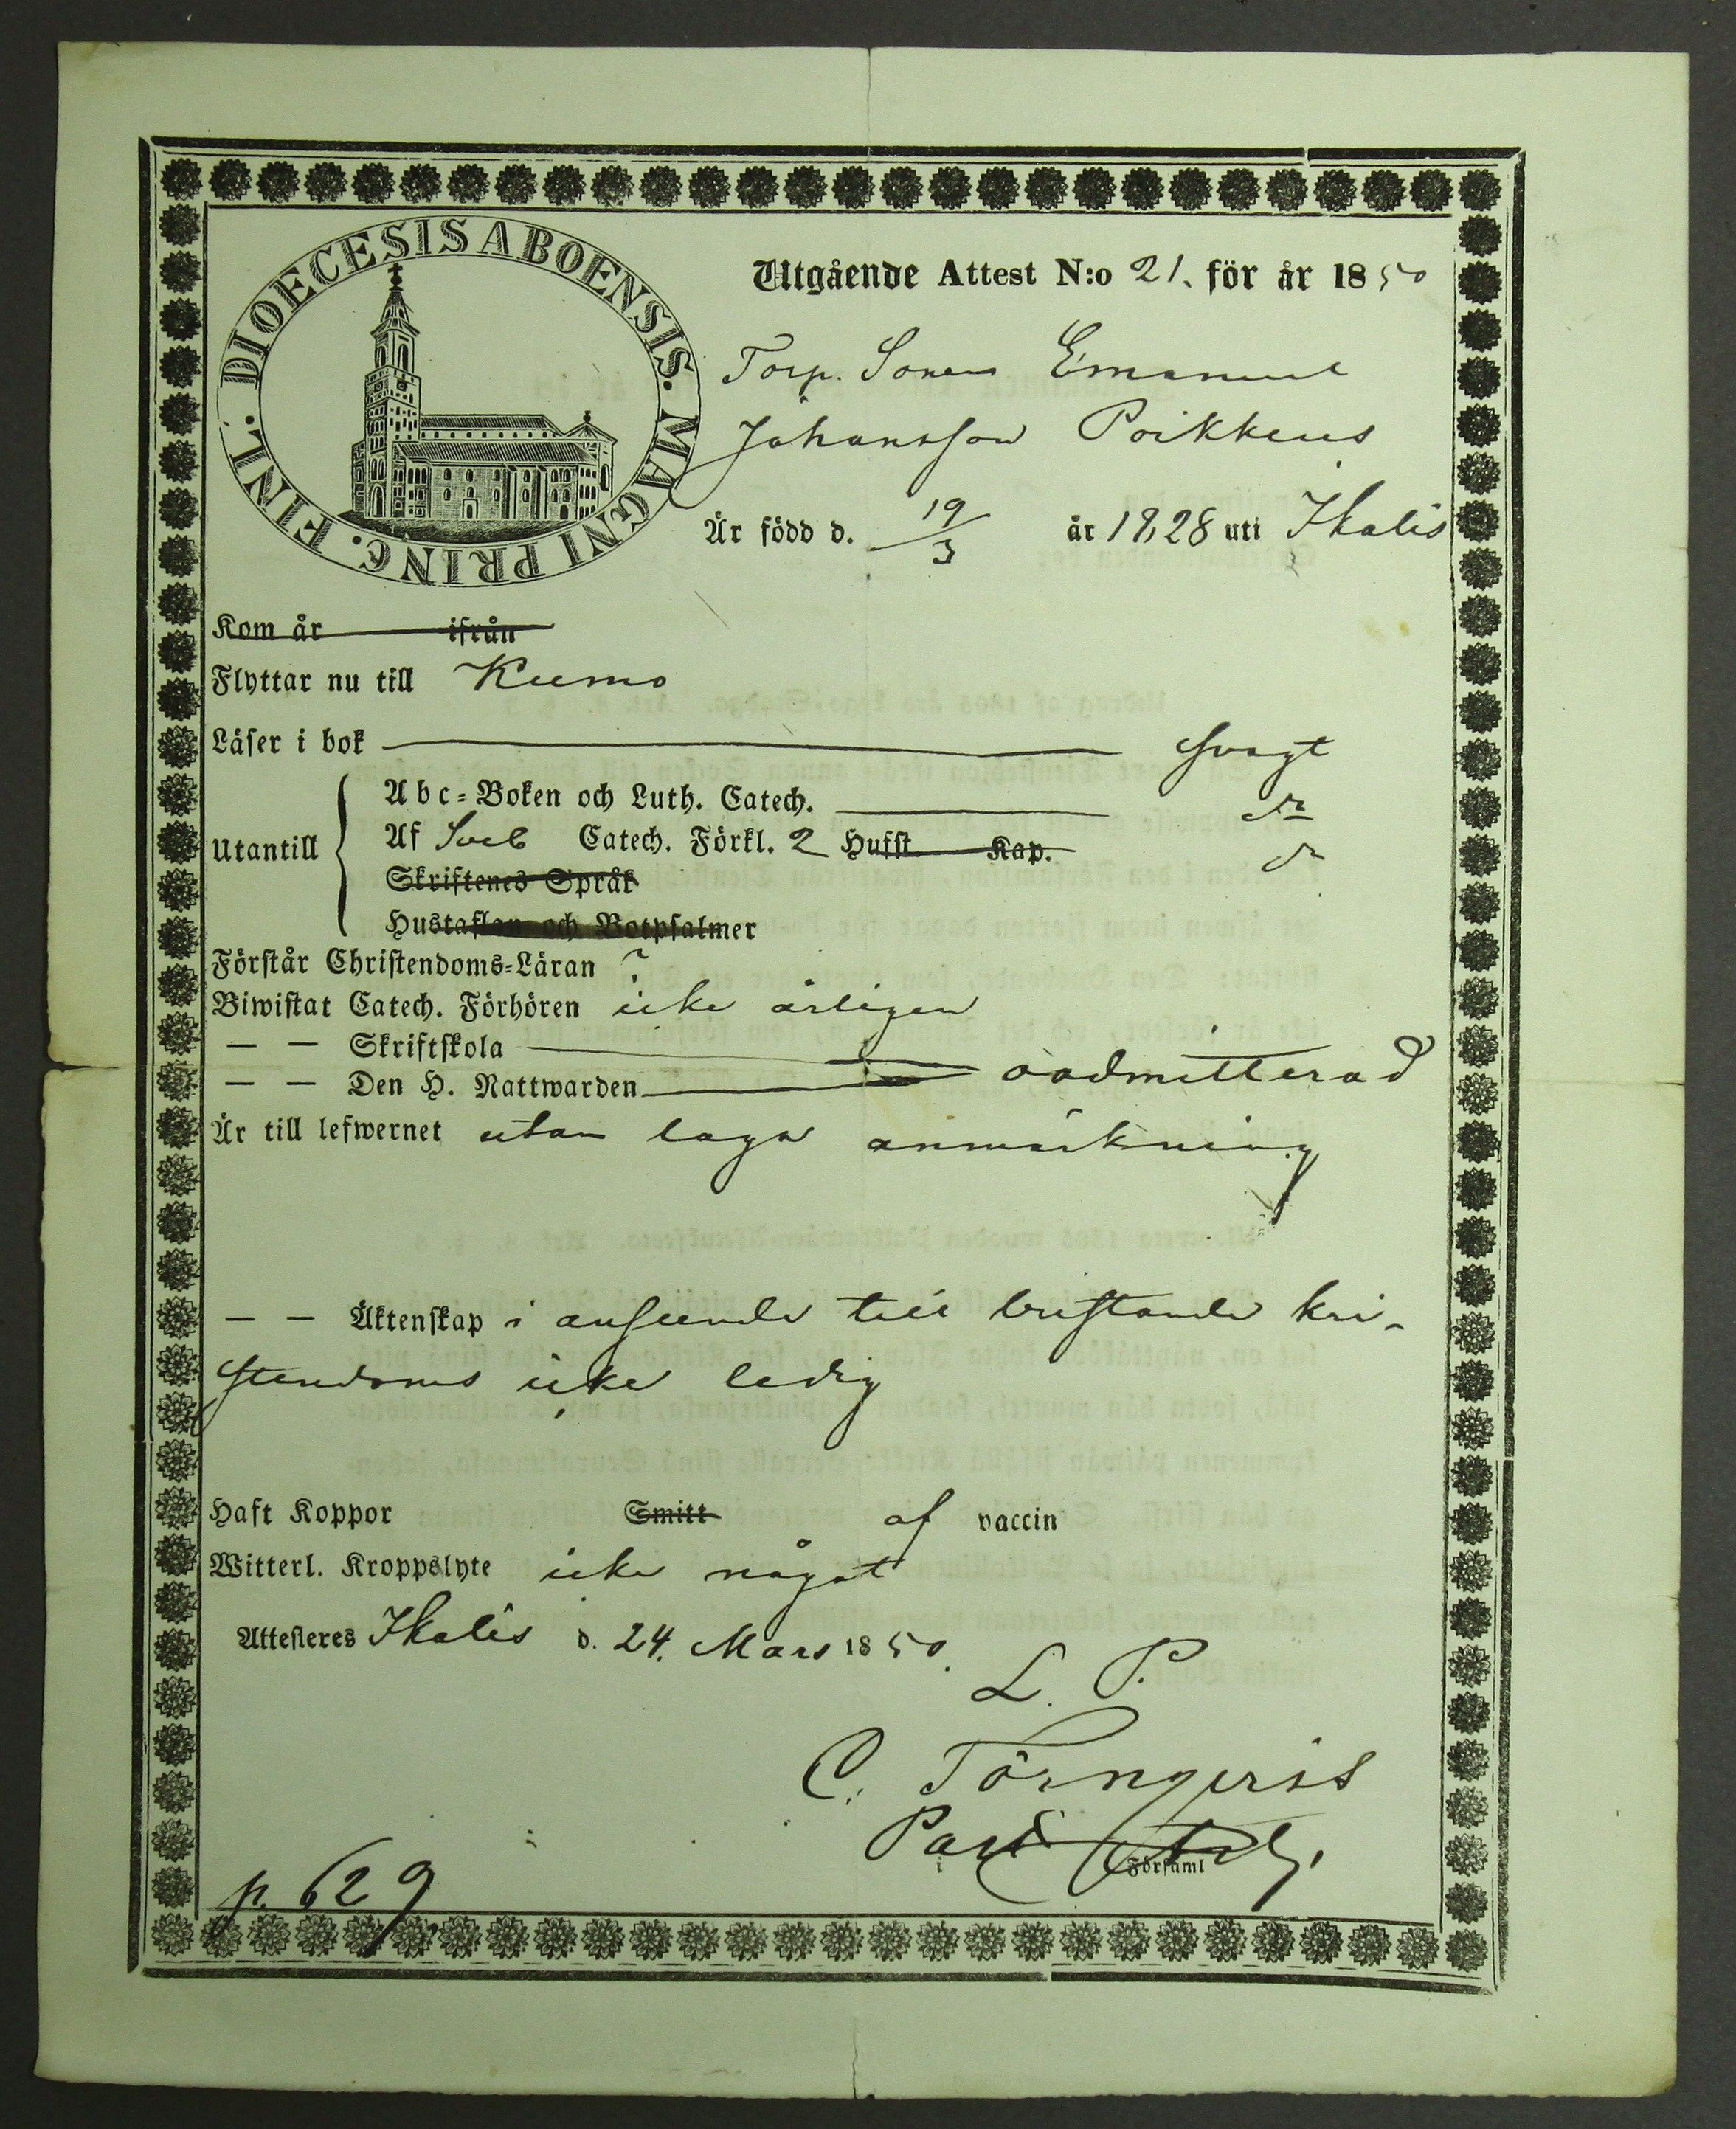 DIOECESIS ABOENSIS. MAGNI PRINC. FINL.
Utgående Attest N:o 21. för år 1850
Torp. Sonen Emanuel
Johansson Poikkeus
Är född d. 19/3 år 1828 uti Ikalis
Kom år ifrån
Flyttar nu till Kumo
Läser i bok svagt
Utantill
Abc-Boken och Luth. Catech. do
Af Sveb Catech. Förkl. 2 Hufst. Kap. do
Skriftenes Språk
Hustaflan och Botpsalmer
Förstår Christendoms-Läran ?
Biwistat Catech. Förhören icke årligen
— — Skriftskola
— — Den H. Nattwarden oadmitterad
Är till lefwernet utan laga anmärkning
— — Äktenskap i anseende till bristande kri-
stendoms icke ledig
Haft Koppor Smitt af vaccin
Witterl. Kroppslyte icke något
Attesteres Ikalis d. 24. Mars 1850.
L. P.
C. Törnqvist
i Församl
p. 629